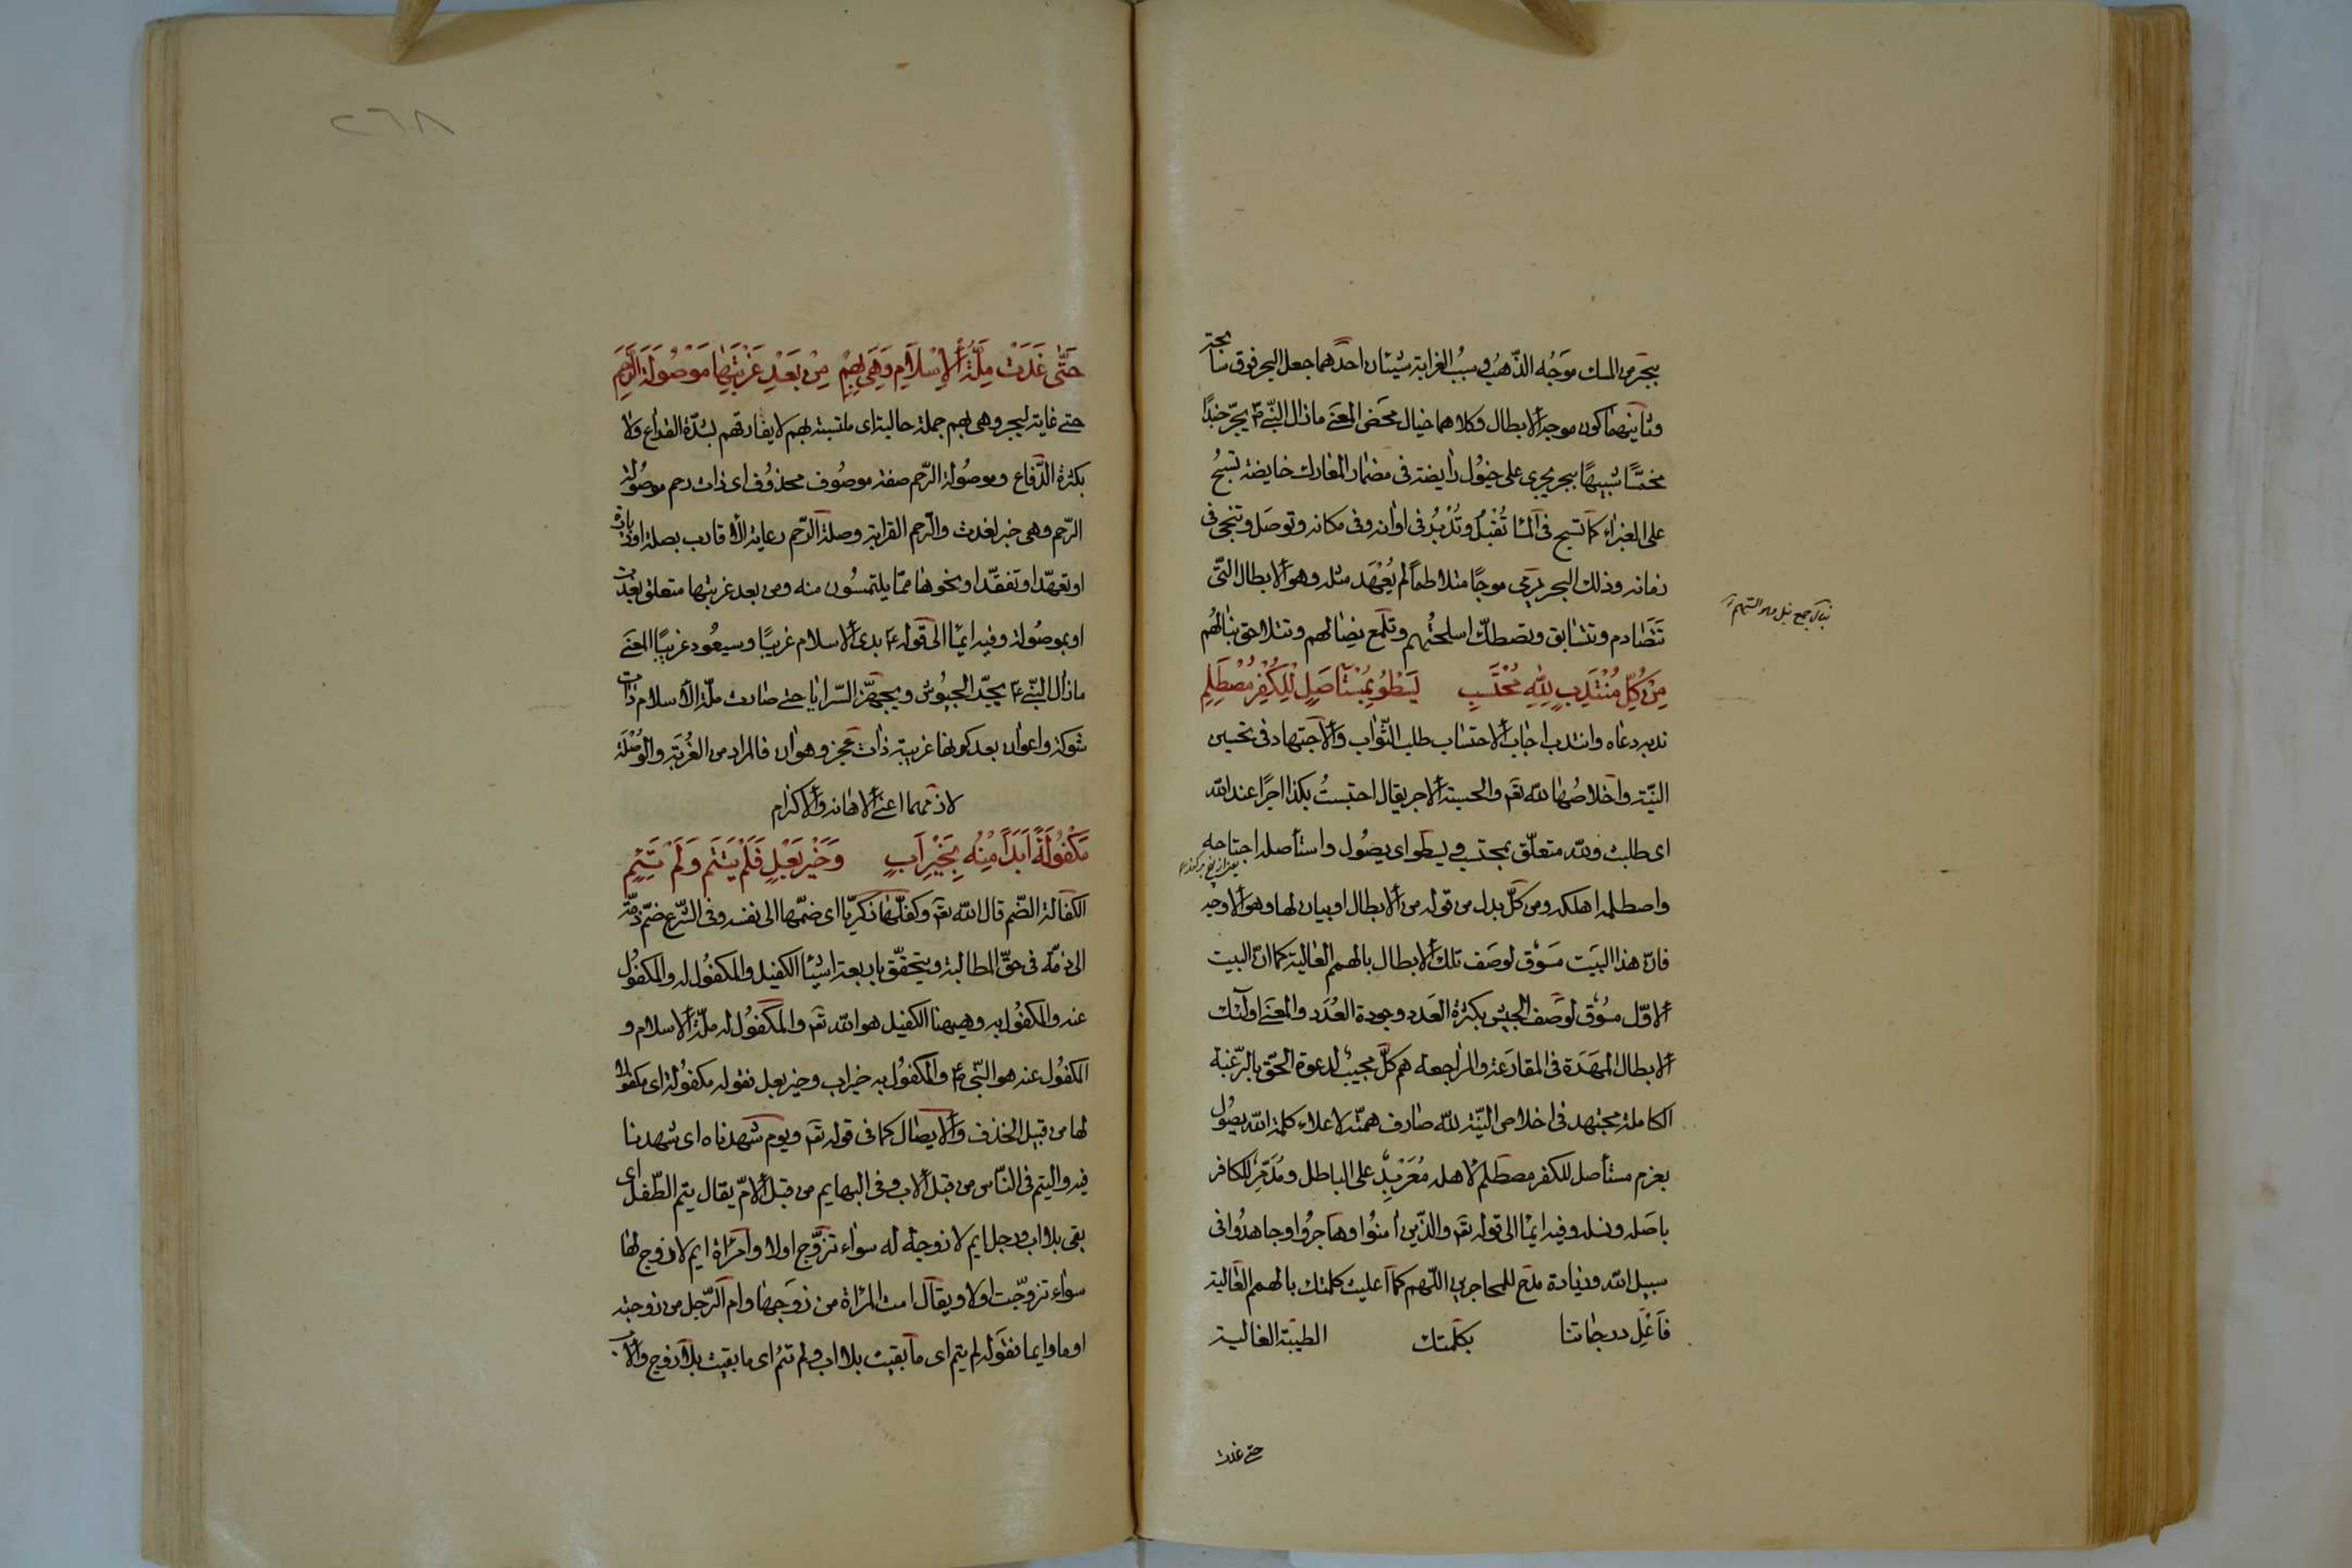 ببحر من المسك موجه الذّهب وسبب الغرابة شيئان احدهما جعل البحر فوق سابحة
وثانيهما كون موجه الابطال وكلاهما خيال محض المعنے ما زال النّبى ؐ يجرّ جندًا
مخمّسًا شبيهًا ببحر يجرى على خيُول رايضة فى مضمار المعارك خايضة تسبحُ
على الغبراء كما تسبح فى المآء تُقْبلُ وتُدْبرُ فى اوانه وفى مكانه وتوصَل وتنجى فى
زمانه وذلك البحر يرمى موجًا متلاطمًا لم يُعْهَد مثله وهو الابطال التّى
تتصادم وتتسابق وتصطكّ اسلحتُهم وتلمع نصالهم وتتلاحق نبالُهُم
نبال جمع نبل وهو السّهم
مِنْ كُلِّ مُنْتَدِبٍ لِلّٰهِ مُحْتَسِبٍ يَسْطُو بِمُسْتَأْصِلٍ لِلْكُفْرِ مُصْطَلِمِ
ندبه دعاه وانتدب اجاب الاحتساب طلب الثّواب والاجتهاد فى تحسين
النيّة واخلاصُها للّه تعَ والحسبة الاجر يقال احتسبتُ بكذا اجرًا عند اللّه
اى طلبت وللّه متعلّق بمحتسب ويسطو اى يصُول واستأصله اجتاحه
واصطلمه اهلكه ومن كلّ بدل من قوله من الابطال او بيان لها وهو الاوجه
فانّ هذا البيَت مسَوْق لوصَف تلك الابطال بالهمم العالية كما انّ البيت
الاوّل مسُوْق لوصَف الجيش بكثرة العَدد وجودة العُدَد والمعنے اولٰئك
الابطال المهَدَة فى المقارَعة والمراجعه هم كلّ مجيب لدعوة الحقّ بالرّغبة
الكاملة مجتهد فى اخلاص النيّة للّه صارف همّته لاعلاء كلمة اللّه يصُول
بعزم مستأصل للكفر مصطلم لاهله مُعَرْبِدٌ على الباطل ومُدَمِّرٌ للكافر
باصَله ونسله وفيه ايمآ الى قوله تعَ والذّين اٰمنُوا وهاجرُوا وجاهدُوا فى
سبيل اللّه وزيادة مدَح للمهاجرين اللّهم كما اعليت كلمتك بالهمم العالية
فاَعْلِ درجاتنا بكلمتك الطيبّة الغالية
حتے غدت
٢٦٨
حَتّٰى غَدَتْ مِلَّةُ الْاِسْلَامِ وَهْيَ بِهِمْ مِنْ بَعْدِ غُرْبَتِهَا مَوْصُولَةَ الرَّحِمِ
حتے غاية ليجر وهى بهم جملة حالية اى ملتبسة بهم لا يفارقهم بشدّة القراع ولا
بكثرة الدّفاع وموصُولة الرّحم صفة موصُوف محذوُف اى ذات رحم موصُولة
الرّحم وهى خبر لغدت والرّحم القرابة وصلة الرّحم رعاية الاقارب بصلة اوزيارة
او تعهّد او تفقّد او نحوها ممّا يلتمسُون منه ومن بعد غربتها متعلق بغدت
او بموصُولة وفيه ايمآ الى قوله ؑ بدى الاسلام غريبًا وسيعُود غريبًا المعنَے
ما زال النّبى ؑ يجيّد الجيُوش ويجهّز السّرايا حتے صارت ملّة الاسلام ذات
شوكة واعوان بعد كونها غريبة ذات عجز وهوان فالمراد من الغُربَة والوُصْلَة
لازمهما اعنے الاهانه والاكرام
مَكْفُولَةً اَبَدًا مِنْهُ بِخَيْرِ اَبٍ وَخَيْرِ بَعْلٍ فَلَمْ يَيْتَمْ وَلَمْ تَئِمِ
الكفالة الضّم قال اللّه تعَ وكفّلها زكريّا اى ضمّها الى نفسه وفى الشّرع ضمّ ذمّة
الى ذمّة فى حقّ المطالبة ويتحقّق باربعة اشيآ الكفيل والمكفوُل له والمكفوُل
عنه والمكفوُل به وهيهنا الكفيل هو اللّه تعَ والمكفوُل له ملّة الاسلام و
المكفوُل عنه هو النّبى ؑ والمكفوُل به خير اب وخير بعل فقوله مكفوُلة اى مكفولا
لها من قبيل الحذف والايصال كما فى قوله تعَ ويوم شهدناه اى شهدنا
فيه واليتم فى النّاس من قبل الاب وفى البهايم من قبل الامّ يقال يتم الطّفل اى
بقى بلا اب ورجل ايم لا زوجة له سواء تزوّج اولا وامرأة ايم لا زوج لها
سواء تزوّجت اولا ويقال امت المرأة من زوجها وام الرّجل من زوجته
اوما وايما فقوله لم يتم اى ما بقيت بلا اب ولم تئم اى ما بقيت بلا زوج